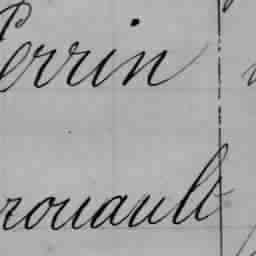 Perrin
rouault